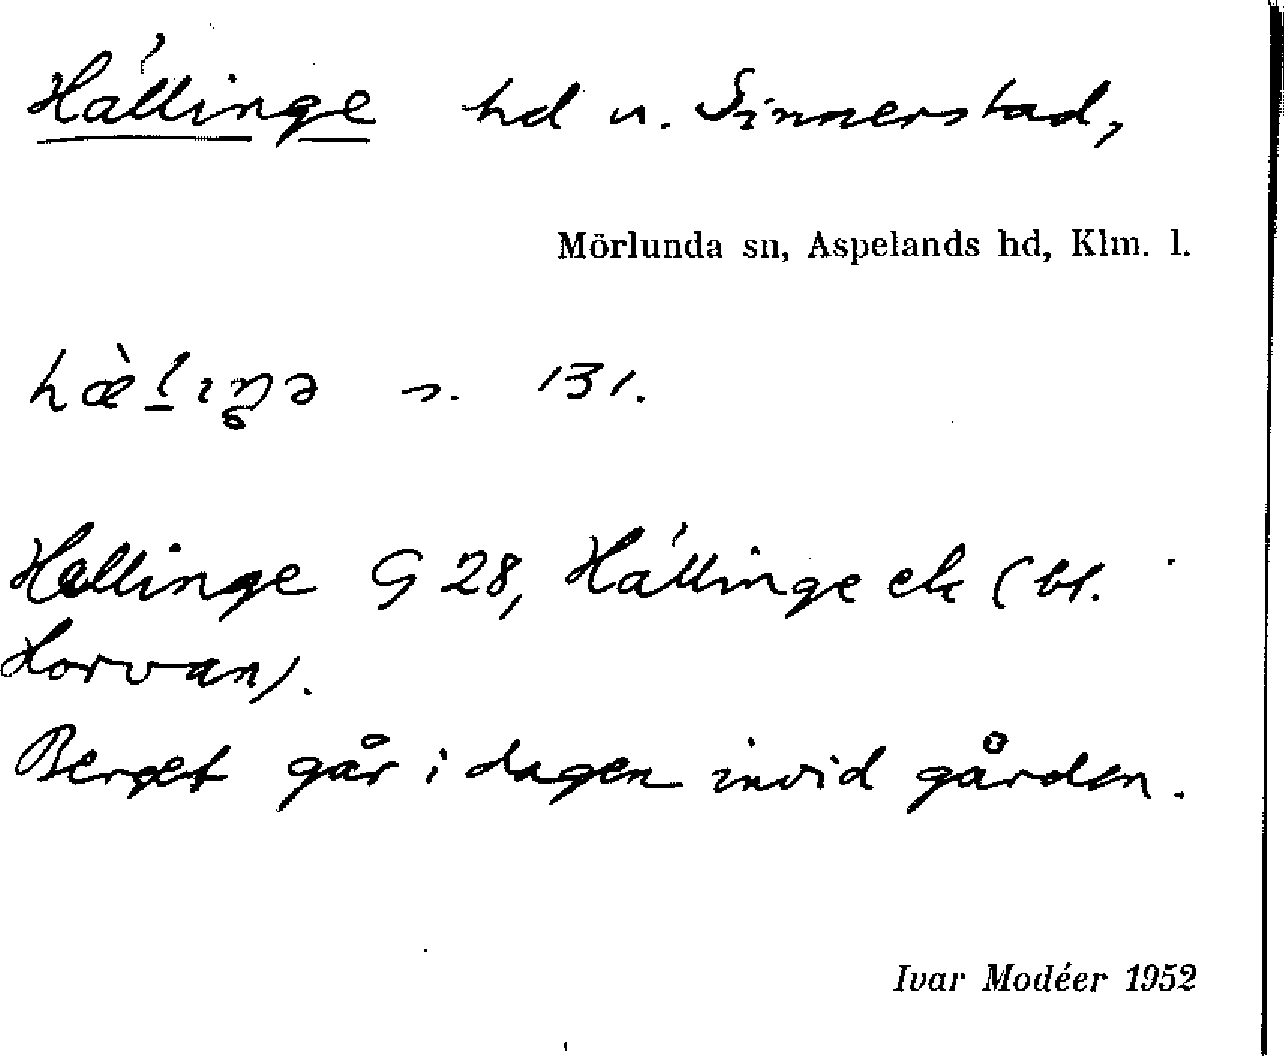 Hállinge hd u. Sinnerstad,
Mörlunda sn, Aspelands hd, Klm. l.
s. 131.
Hallinge G 28, Hállinge ek (bl.
Horvan).
Berget går i dagen invid gården.
Ivar Modéer 1952